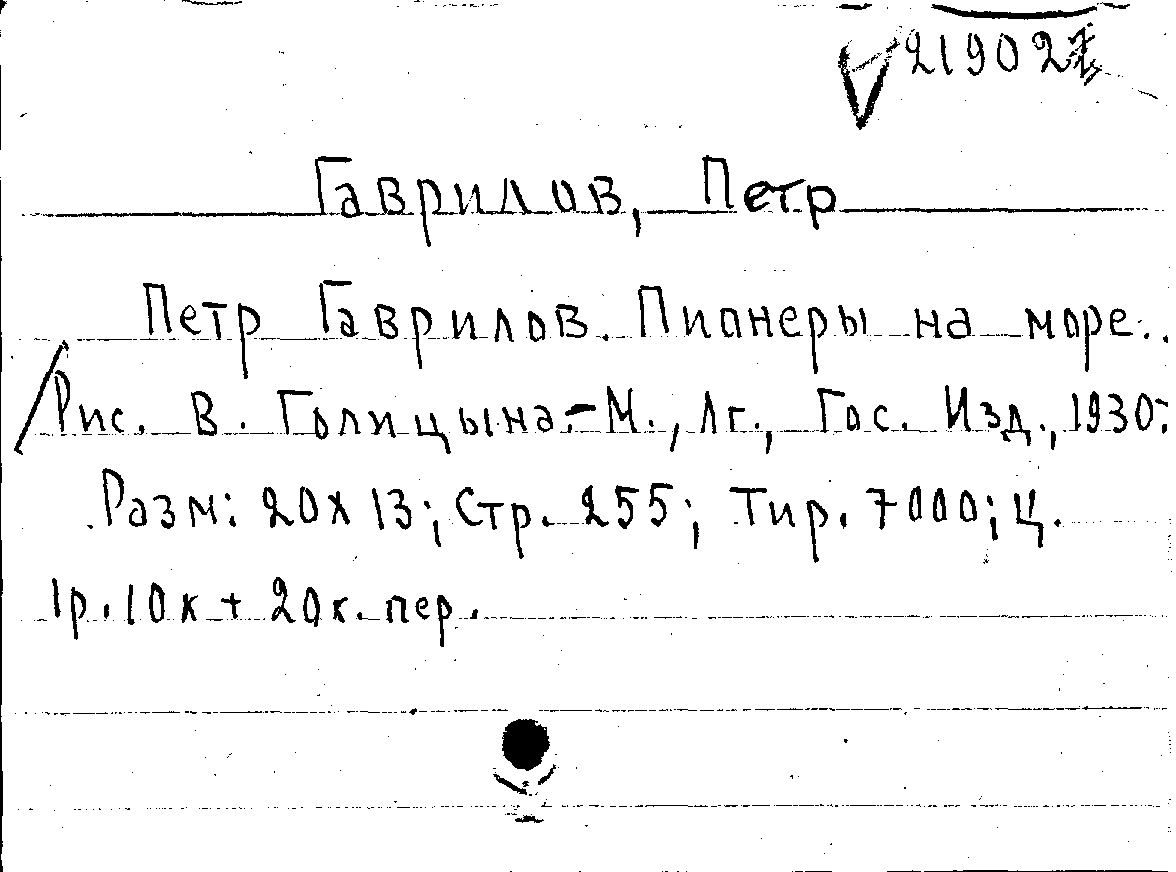 21902
Гаврилов, Петр
Петр Гаврилов. Пионеры на море..
Рис. В. Голицына.-М., Лг., Гос. Изд., 1930.
Разм: 20х13; Стр. 255; Тир. 7000; Ц.
1р. 10к + 20к. пер.